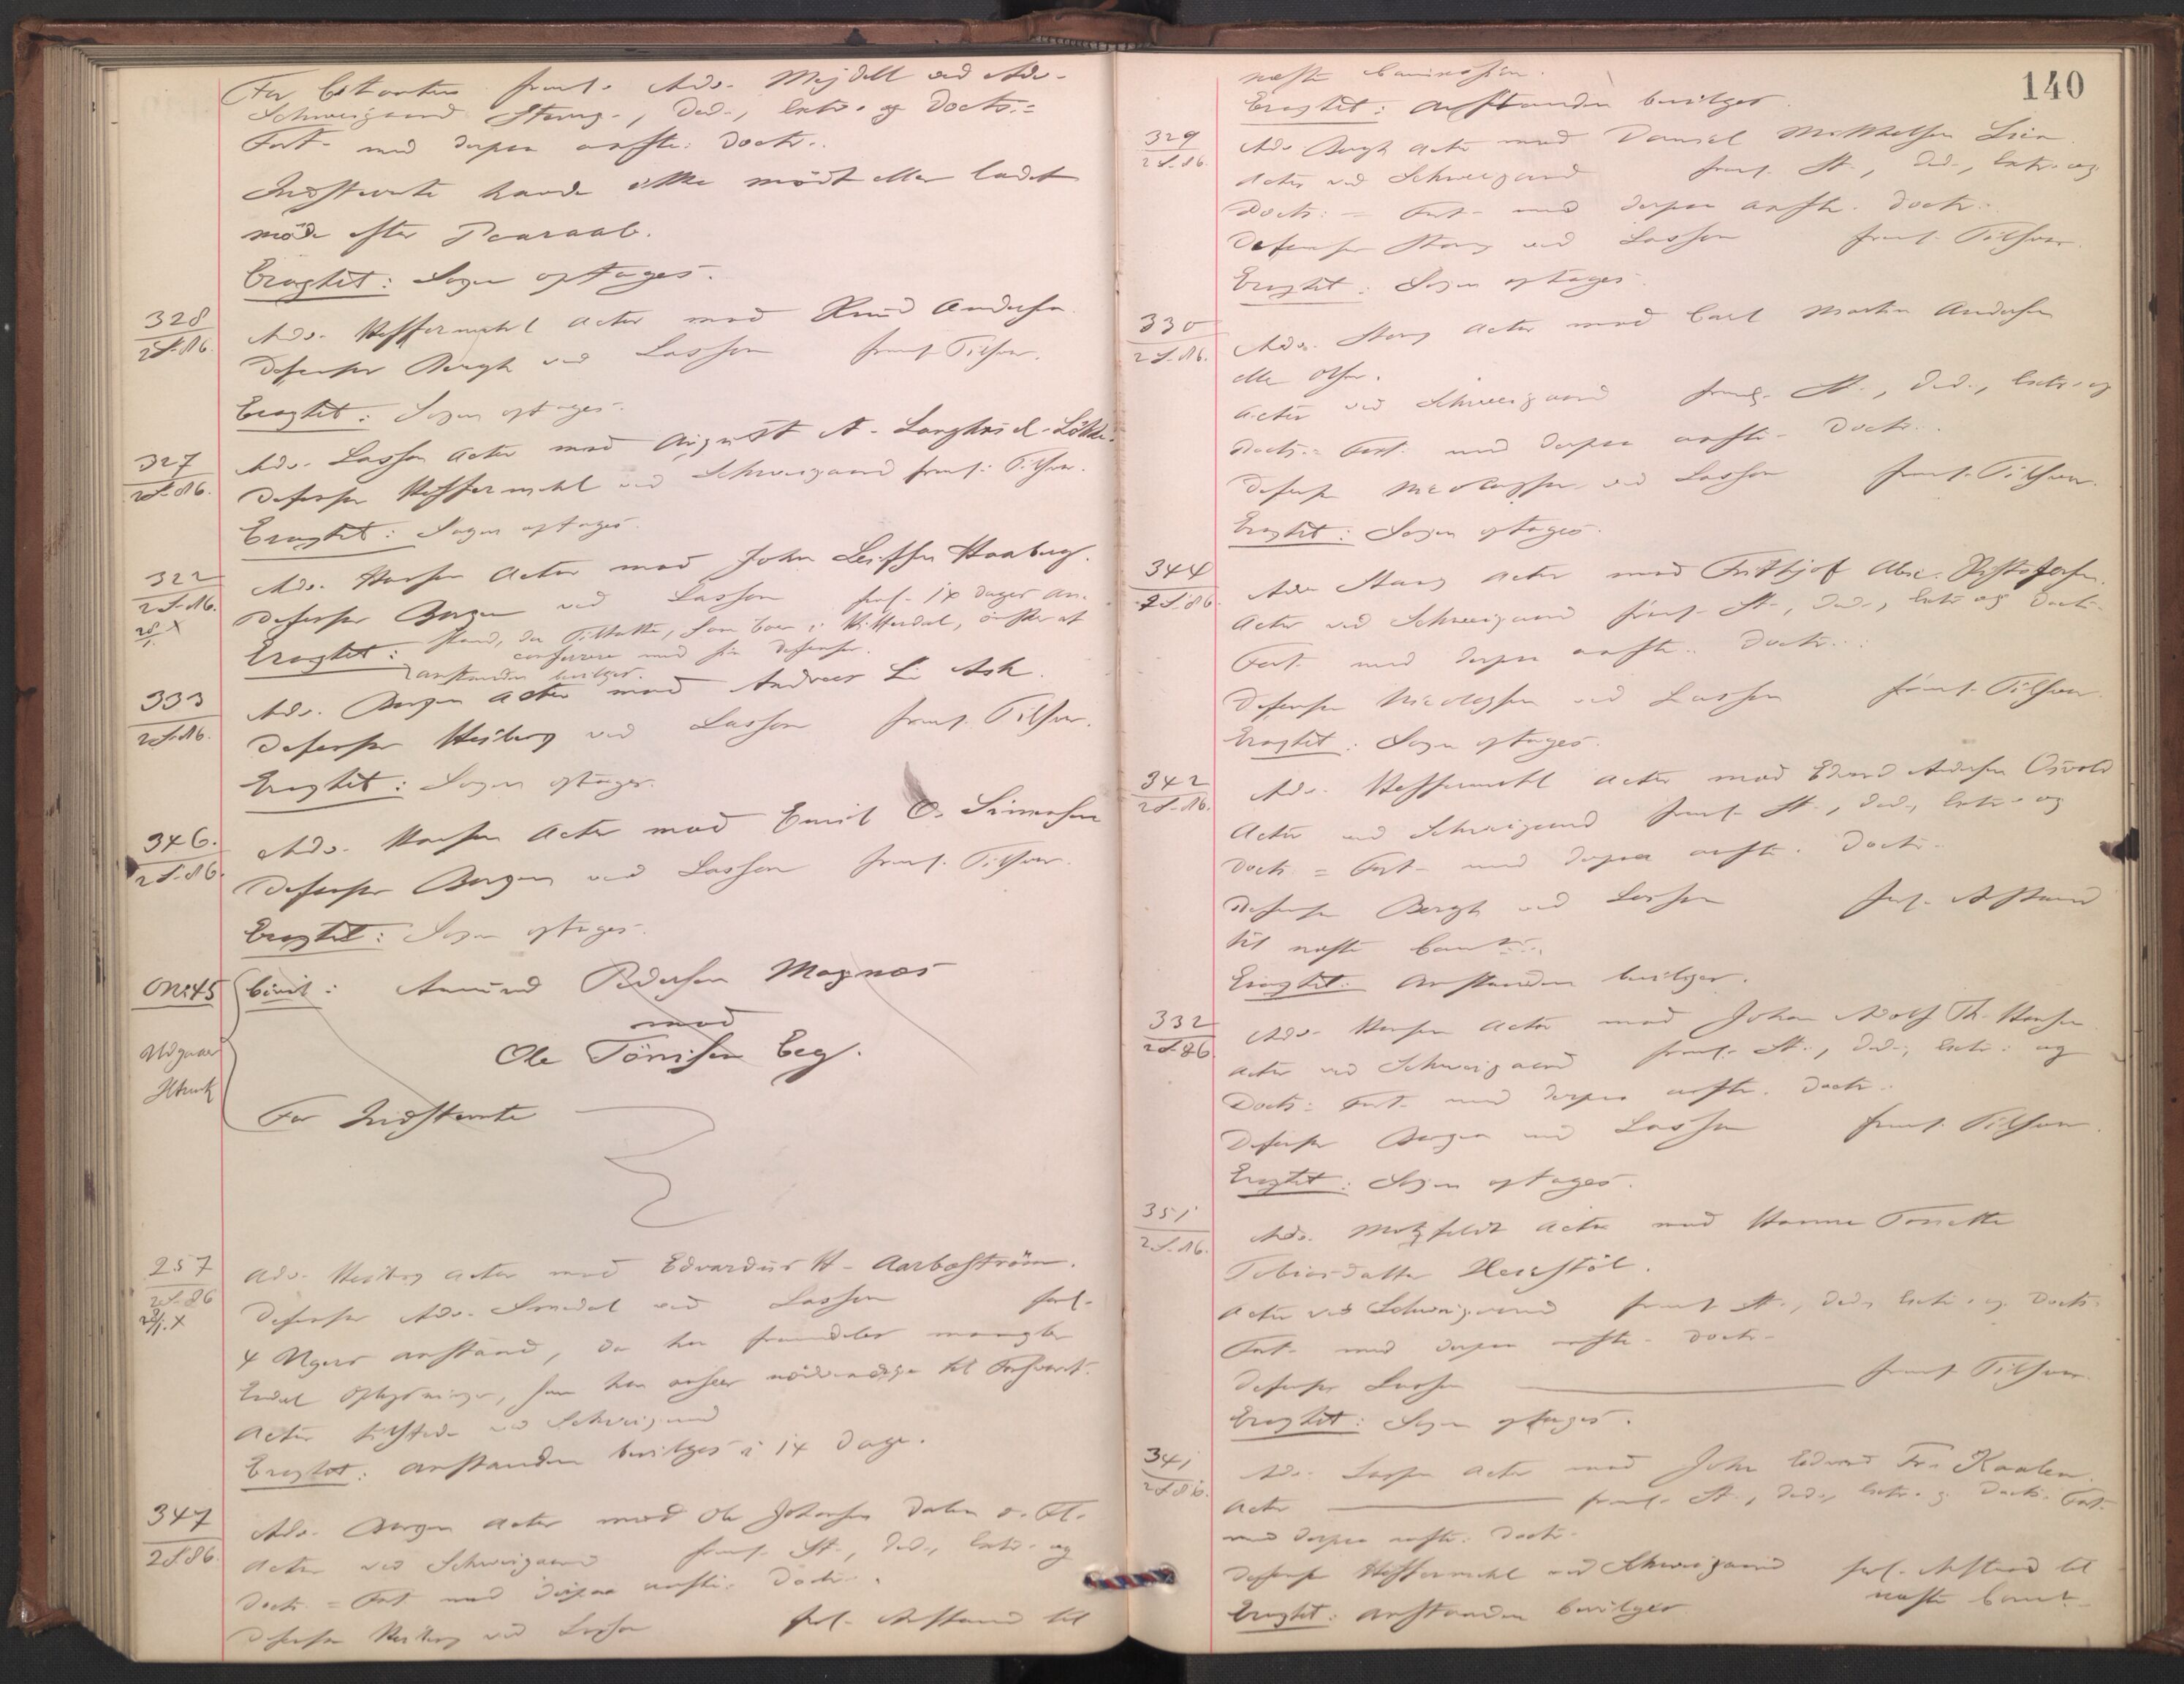 For Citanten freml. Adv. Mejdell ved Adv.
Schweigaard Stevng., Ded., Extr. og Doct.=
Fort. med derpaa anfte. Doctr.
Indstevnte havde ikke mödt eller ladet
möde efter Paaraab.
Eragtet: Sagen optages.
328
2 S. 86.
Adv. Heffermehl Actor mod Knud Andersen.
Defensor Bergh ved Lasson freml. Tilsvar.
Eragtet: Sagen optages.
327
2 S. 86.
Adv. Lasson Actor mod August A.
Defensor Heffermehl ved Schweigaard freml. Tilsvar.
Eragtet: Sagen optages.
322
2 S. 86.
28/1 X
Adv. Hansen Actor mod John Haaberg.
Defensor Bergen ved Lasson forl. 14 Dages An-
stand, da Tiltalte, som boer i Hitterdal, önsker at
conferere med sin Defensor.
Eragtet: Anstanden bevilges.
333
2 S. 86.
Adv. Bergen Actor mod Andreas L. Ask.
Defensor Heiberg ved Lasson freml. Tilsvar.
Eragtet: Sagen optages.
346.
2 S. 86.
Adv. Hansen Actor mod Emil O. Simensen
Defensor Bergen ved Lasson freml. Tilsvar.
Eragtet: Sagen optages.
Civil: Amund Pedersen Magnæs
mod
Ole Tönisen Eeg.
Udgaaer
For Indstevnte
257
2 S. 86
28/1. X
Adv. Heiberg Actor mod Edvardus H. Aarboström.
Defensor Adv. Smedal ved Lasson forl.
4 Ugers Anstand, da han fremdeles mangler
Endel Oplysninger, som han anseer nödvendige til Forsvaret.
Actor tilstede ved Schweigaard
Eragtet: Anstanden bevilges i 14 Dage.
347
2 S 86.
Adv. Bergen Actor mod Ole Johansen Dalen o. Fl.
Actor ved Schweigaard freml. St., Ded., Extr. og
Doctr. = Fort. med derpaa anfte. Doctr.
Defensor Heiberg ved Lasson forl. Anstand til
140
næste
Eragtet: Anstanden bevilges.
329
2 S. 86.
Adv. Bergh Actor mod Daniel Mikkelsen Lien
Actor ved Schweigaard freml. St., Ded., Extr. og
Doctr. = Fort. med derpaa anfte. Doctr.
Defensor Stang ved Lasson freml. Tilsvar.
Eragtet: Sagen optages.
330
2 S. 86.
Adv. Stang Actor mod Carl Martin Andersen
eller Olsen.
Actor ved Schweigaard freml. St., Ded., Extr. og
Doctr. = Fort. med derpaa anfte. Doctr.
Defensor Nicolaysen ved Lasson freml. Tilsvar.
Eragtet: Sagen optages.
344
2 S. 86.
Adv. Stang Actor mod Frithjof
Actor ved Schweigaard freml. St., Ded., Extr. og Doctr.
Fort. med derpaa anfte. Doctr.
Defensor Nicolaysen ved Lasson freml. Tilsvar.
Eragtet: Sagen optages.
342
2 S. 86.
Adv. Heffermehl Actor mod Edvard Andersen Osvold
Actor ved Schweigaard freml. St., Ded., Extr. og
Doctr. = Fort. med derpaa anfte. Doctr.
Defensor Bergh ved Lasson forl. Anstand
til næste
Eragtet: Anstanden bevilges.
332
2 S. 86.
Adv. Hansen Actor mod Johan Adolf Th. Hansen
Actor ved Schweigaard freml. St., Ded., Extr. og
Doctr. = Fort. med derpaa anfte. Doctr.
Defensor Bergen ved Lasson freml. Tilsvar.
Eragtet: Sagen optages.
351
2 S. 86.
Adv. Motzfeldt Actor mod Hanne Tonette
Tobiasdatter
Actor ved Schweigaard freml. St., Ded., Extr. og Doctr.
Fort. med derpaa anfte. Doctr.
Defensor Lasson freml. Tilsvar.
Eragtet: Sagen optages.
341
2 S 86.
Adv. Lasson Actor mod John Edvard Fr. Kaalen.
Actor freml. St., Ded., Extr. og Doctr. Fort.
med derpaa anfte. Doctr.
Defensor Heffermehl ved Schweigaard forl. Anstand til
næste
Eragtet: Anstanden bevilges